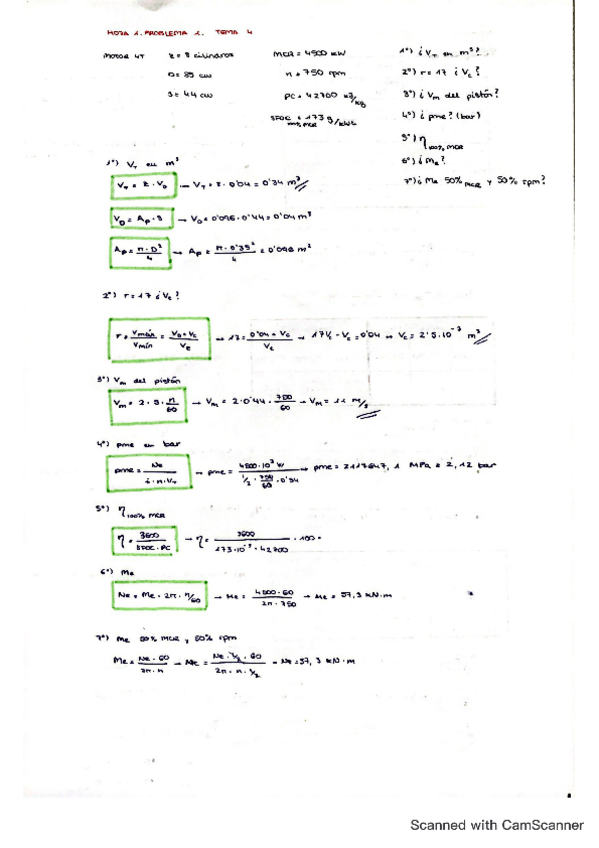 HOJA 1. PROBLEMA 1. TEMA 4
MOTOR 4T z = 8 cilindros MCR = 4500 kW 1º) ¿ V_T en m³?
D = 35 cm n = 750 rpm 2º) r = 17 ¿ V_c ?
S = 44 cm PC = 42700 kJ/kg 3º) ¿ V_m del pistón?
SFOC 100% MCR = 173 g/kWh 4º) ¿ pme? (bar)
5º) η 100% MCR
6º) ¿ Me?
7º) ¿ Me 50% MCR y 50% rpm?
1º) V_T en m³
V_T = z · V_D → V_T = 8 · 0'04 = 0'34 m³
V_D = A_p · S → V_D = 0'096 · 0'44 = 0'04 m³
A_p = π · D² / 4 → A_p = π · 0'35² / 4 = 0'096 m²
2º) r = 17 ¿ V_c ?
r = Vmáx / Vmín = V_D + V_c / V_c → 17 = 0'04 + V_c / V_c → 17V_c - V_c = 0'04 → V_c = 2'5 · 10⁻³ m³
3º) V_m del pistón
V_m = 2 · S · n / 60 → V_m = 2 · 0'44 · 750 / 60 → V_m = 11 m/s
4º) pme en bar
pme = Ne / i · n · V_T → pme = 4500 · 10³ W / ½ · 750/60 · 0'34 → pme = 2117647, 1 MPa = 2, 12 bar
5º) η 100% MCR
η = 3600 / SFOC · PC → η = 3600 / 173 · 10⁻³ · 42700 · 100 =
6º) Me
Ne = Me · 2π · n/60 → Me = 4500 · 60 / 2π · 750 → Me = 57, 3 kN·m
7º) Me 50% MCR y 50% rpm
Me = Ne · 60 / 2π · n → Me = Ne · ½ · 60 / 2π · n · ½ = Me = 57, 3 kN · m
Scanned with CamScanner